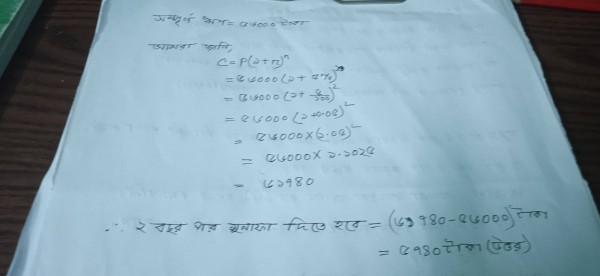 সম্পূর্ণ ঋণ = ৫৬০০০ টাকা
আমরা জানি,
C = P(১+r)ⁿ
= ৫৬০০০(১+৫%)²
= ৫৬০০০(১+ ৫/১০০)²
= ৫৬০০০(১+০.০৫)²
= ৫৬০০০×(১.০৫)²
= ৫৬০০০×১.১০২৫
= ৬১৭৪০
∴ ২ বছর পর মুনাফা দিতে হবে = (৬১৭৪০-৫৬০০০) টাকা
= ৫৭৪০ টাকা (উত্তর)